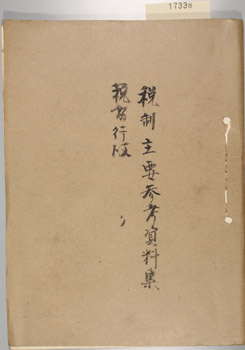 17338
税制主要参考資料集
税務行政 〃